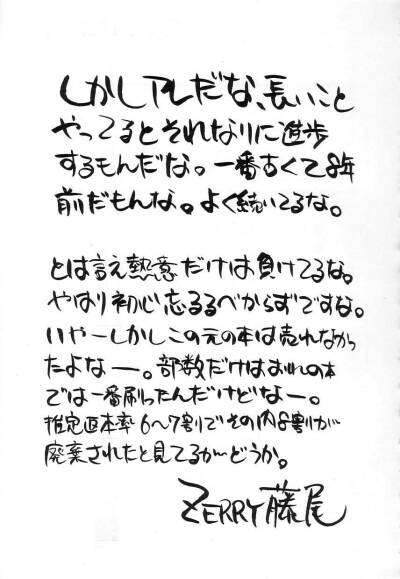 しかしアレだな、長いこと
やってるとそれなりに進歩
するもんだな。一番古くて8年
前だもんな。よく続いてるな。
とは言え熱意だけは負けてるな。
やはり初心忘るるべからずですな。
いやーしかしこの元の本は売れなかっ
たよなー。部数だけはおれの本
では一番刷ったんだけどなー。
推定返本率6〜7割でその内8割が
廃棄されたと見てるが〜どうか。
ZERRY藤尾